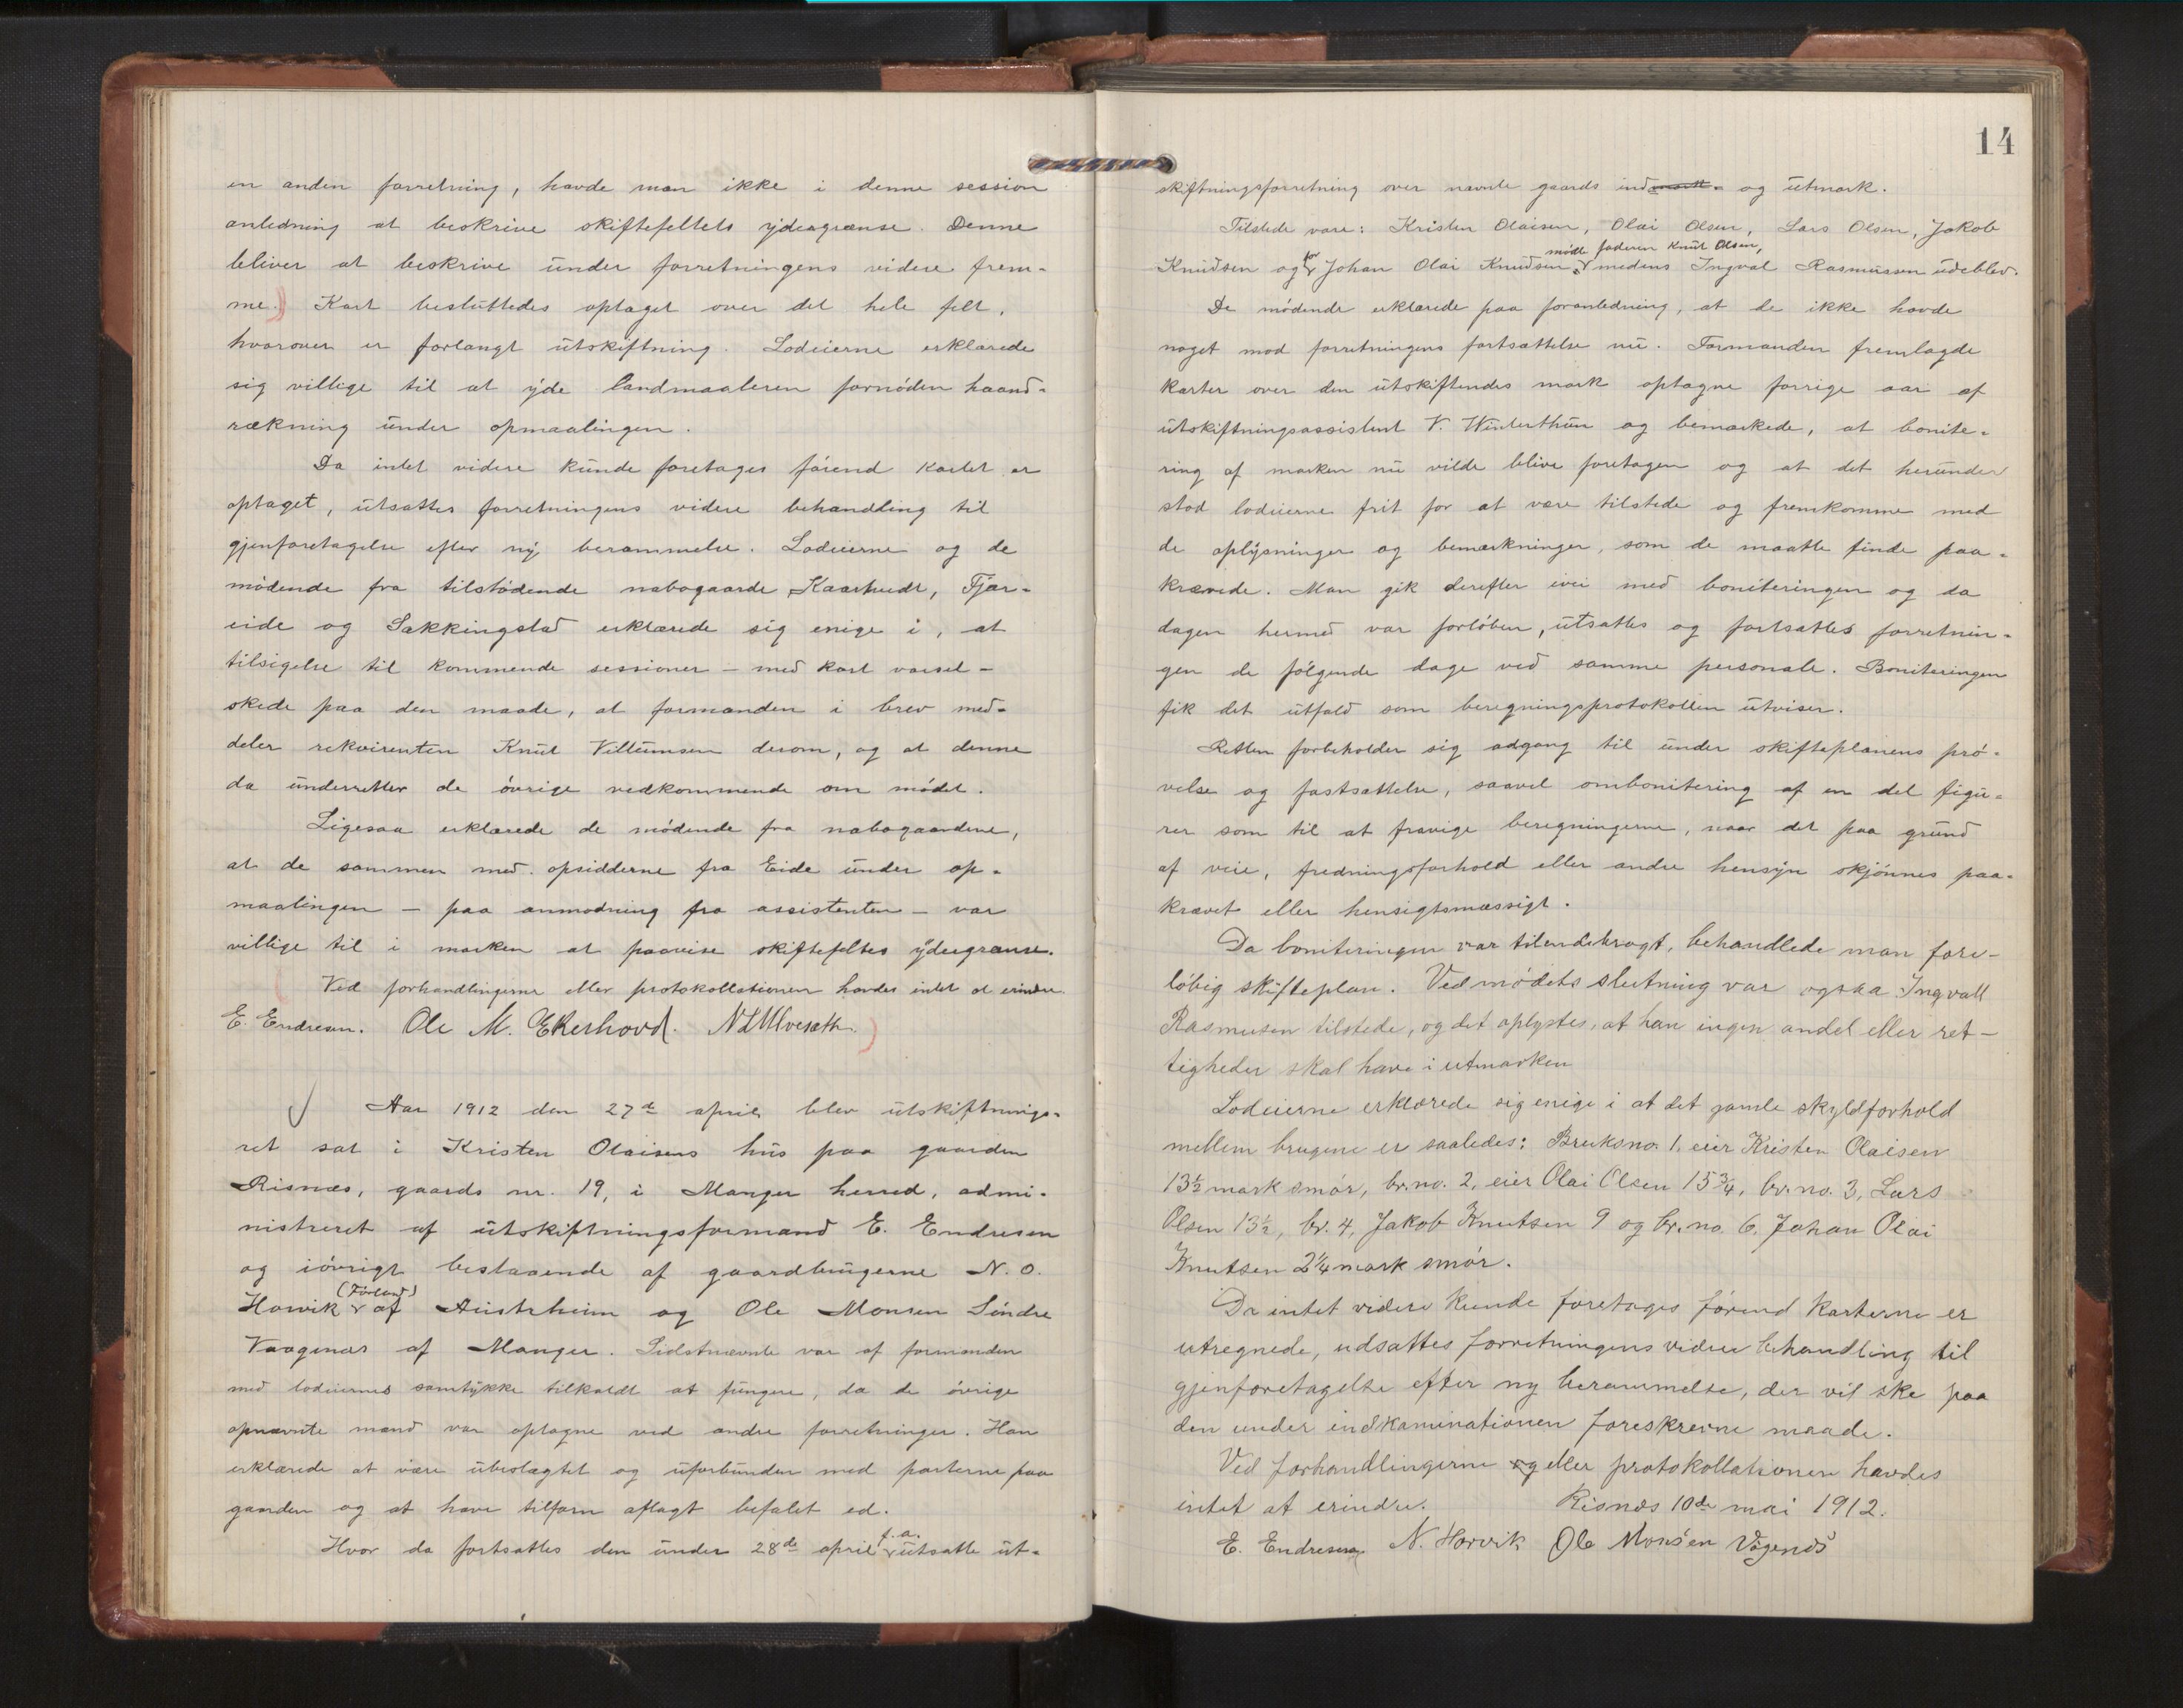 en anden forretning, havde man ikke i denne session
anledning at beskrive skiftefeltets ydregrænse. Denne
bliver at beskrive under forretningens videre frem-
me. Kart besluttedes optaget over det hele felt,
hvorover er forlangt utskiftning. Lodeierne erklærede
sig villige til at yde landmaaleren fornøden haand-
rækning under opmaalingen.
Da intet videre kunde foretages førend kartet er
optaget, utsattes forretningens videre behandling til
gjenforetagelse efter ny berammelse. Lodeierne og de
mødende fra tilstødende nabogaarde Kaartveit, Fjær-
eide og Sækkingstad erklærede sig enige i, at
tilsigelse til kommende sessioner – med kort varsel –
skede paa den maade, at formanden i brev med-
deler rekvirenten Knut Villumsen derom, og at denne
da underretter de øvrige vedkommende om mødet.
Ligesaa erklærede de mødende fra nabogaardene,
at de sammen med opsidderne fra Eide under op-
maalingen – paa anmodning fra assistenten – var
villige til i marken at paavise skiftefeltes ydregrænse.
Ved forhandlingerne eller protokollationen havdes intet at erindre.
E. Endresen. Ole M. Ekerhovd.
Aar 1912 den 27de april blev utskiftnings-
ret sat i Kristen Olaisens hus paa gaarden
Risnæs, gaards nr. 19, i Manger herred, admi-
nistreret af utskiftningsformand E. Endresen
og iøvrigt bestaaende af gaardbrugerne N. O.
(Førland)
Horvik af Austrheim og Ole Monsen Søndre
Vaagenæs af Manger. Sidstnævnte var af formanden
med lodeiernes samtykke tilkaldt at fungere, da de øvrige
opnævnte mænd var optagne ved andre forretninger. Han
erklærede at være ubeslægtet og uforbunden med parterne paa
gaarden og at have tilforn aflagt befalet ed.
f. a.
Hvor da fortsattes den under 28de april utsatte ut-
14
skiftningsforretning over nævnte gaards ind- og utmark.
Tilstede vare: Kristen Olaisen, Olai Olsen, Lars Olsen, Jakob
for mødte faderen Knut Olsen,
Knudsen og Johan Olai Knudsen medens Ingval Rasmussen udeblev.
De mødende erklærede paa foranledning, at de ikke havde
noget mod forretningens fortsættelse nu. Formanden fremlagde
karter over den utskiftendes mark optagne forrige aar af
utskiftningsassistent V. Winterthun og bemærkede, at bonite-
ring af marken nu vilde blive foretagen og at det herunder
stod lodeierne frit for at være tilstede og fremkomme med
de oplysninger og bemærkninger, som de maatte finde paa-
krævede. Man gik derefter ivei med boniteringen og da
dagen hermed var forløben, utsattes og fortsattes forretnin-
gen de følgende dage ved samme personale. Boniteringen
fik det utfald som beregningsprotokollen utviser.
Retten forbeholder sig adgang til under skifteplanens prø-
velse og fastsættelse, saavel ombonitering af en del figu-
rer som til at fravige beregningerne, naar det paa grund
af veie, fredningsforhold eller andre hensyn skjønnes paa-
krævet eller hensigtsmæssigt.
Da boniteringen var tilendebragt, behandlede man fore-
løbig skifteplan. Ved mødets slutning var ogsaa Ingvall
Rasmusen tilstede, og det oplystes, at han ingen andel eller ret-
tigheder skal have i utmarken
Lodeierne erklærede sig enige i at det gamle skyldforhold
mellem brugene er saaledes: Bruksno. 1, eier Kristen Olaisen
13½ mark smør, br. no. 2, eier Olai Olsen 15¾, br. no. 3, Lars
Olsen 13½, br. 4, Jakob Knutsen 9 og br. no. 6, Johan Olai
Knutsen 2¼ mark smør.
Da intet videre kunde foretages førend karterne er
utregnede, udsattes forretningens videre behandling til
gjenforetagelse efter ny berammelse, der vil ske paa
den under indkaminationen foreskrevne maade.
Ved forhandlingerne eller protokollationen havdes
intet at erindre. Risnæs 10de mai 1912.
E. Endresen N. Horvik Ole Monsen Vågenæs